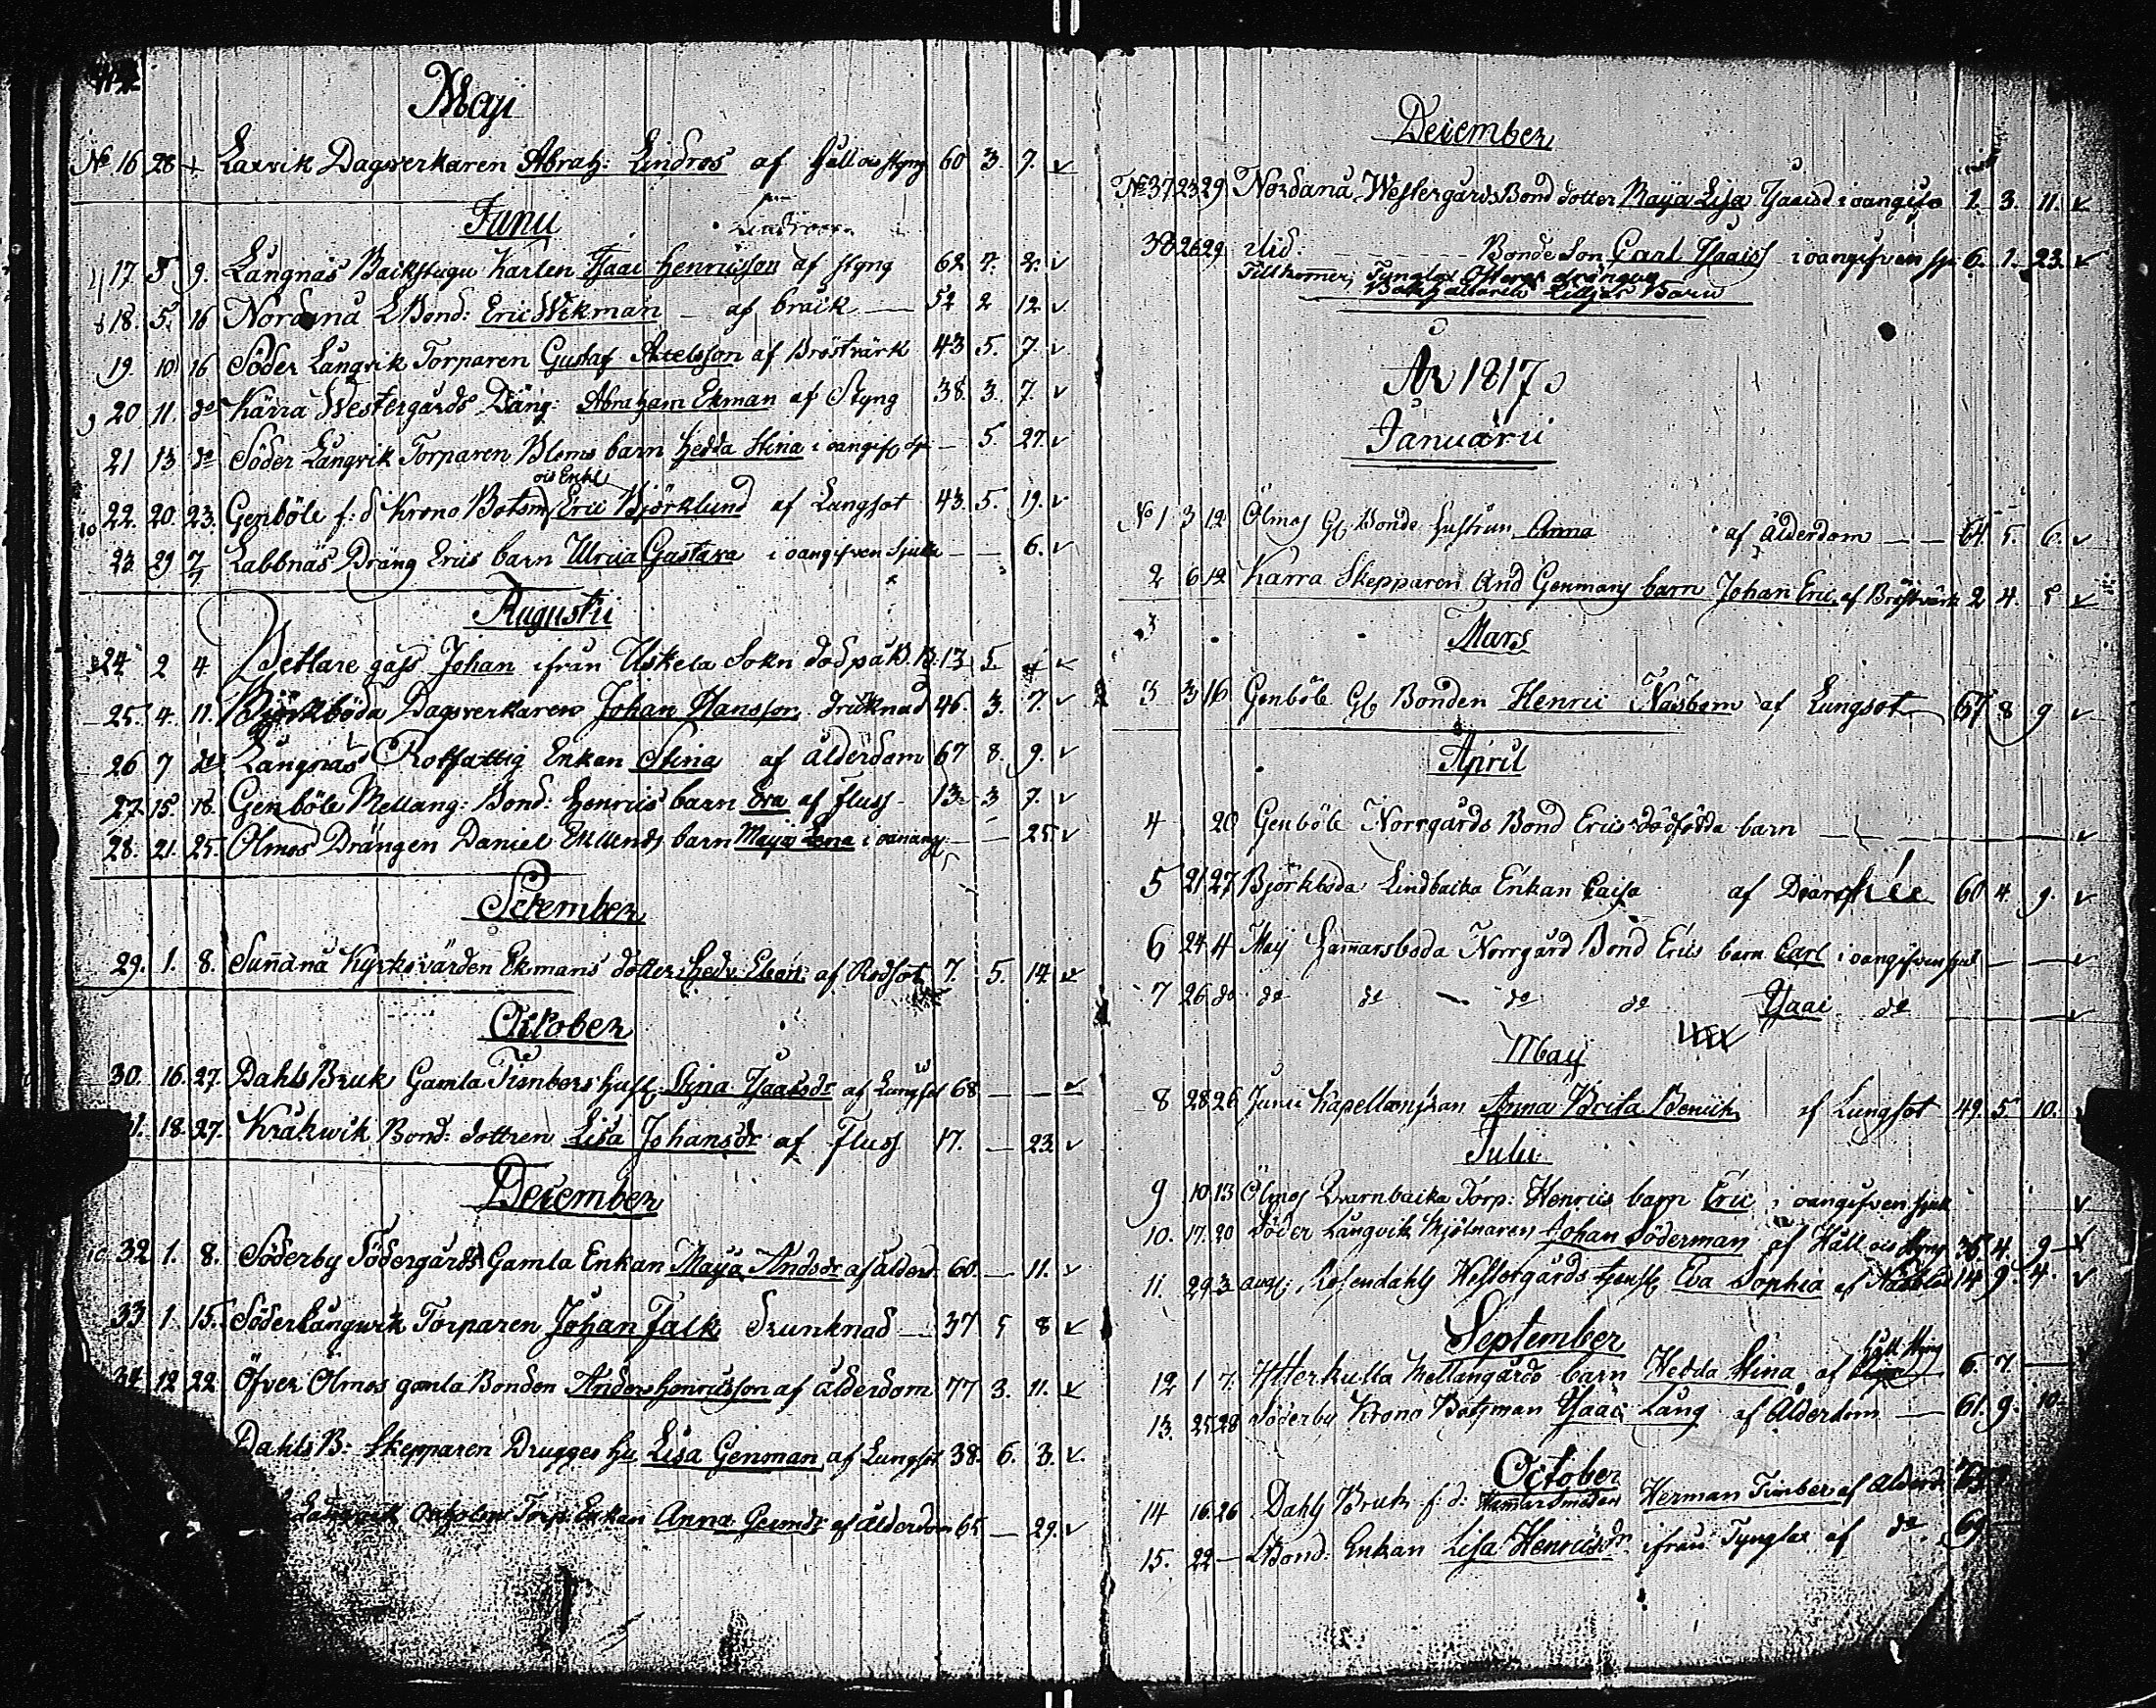 Maji
No 16 28 + Laxvik Dagsverkaren Abrah: Lindros af Håll och styng 60 3. 7.
Junii
Lindroos
17 5 9. Långnäs Backstugu Karlen Isaac Henricsson af styng 62 7. 2.
18. 5. 16 Nordanå LBond: Eric Wikman — af bråck — 52 2 12
19 10 16 Söder Långvik Torparen Gustaf Axelsson af Bröstvärk 43 5. 7.
20 11. do Kärra Westergårds Däng: Abraham Ekman af Styng 38. 3. 7.
21 13 do Söder Långvik Torparen Bloms barn Hedda Stina i oangif sju — 5. 27.
och Enkl
22. 20. 23. Genböle f: d Krono Botsm Eric Björklund af Lungsot 43. 5. 19.
23. 29 7/7 Labbnäs Dräng Erics barn Ulrica Gustava i oangifven Sjukd — — 6.
Augustii
24 2 4 Bettlare gåss Johan ifrån Uskela Sokn dod på K. B. 13 5
25. 4. 11. Björkböda Dagsverkaren Johan Hansson drucknad 46. 3. 7.
26 7 do Långnäs Rotfattig Enkan Stina af ålderdom 67 8. 9.
27. 15. 18. Genböle Mellang: Bond: Henrics barn Eva af fluss 13 3 7.
28. 21. 25. Olmos Drängen Daniel Eklunds barn Maija Lena i oanang: — — 25.
September
29. 1. 8. Sunnanå Kyrkovärden Ekmans dotter Hedv: Eleon: af Rödsot 7. 5. 14.
October
30. 16. 27. Dahls Bruk Gamla Timbers hust: Stina Isaacsdr af Lungsot 68 — —
31. 18. 27. Kråkwik Bond: dottren Lisa Johansdr af Fluss 17. — 23.
December
32 1. 8. Söderby Södergårds Gamla Enkan Maija Andsdr af ålderd 60. — 11.
33 1. 15. Söderlångwik Torparen Johan Falk Drunknad — 37 5 8
34 12 22 Öfver Olmos gamla Bonden Anders Henricsson af ålderdom 77 3. 11.
Dahls B: Skepparen Drugges hu Lisa Genman af Lungsot 38. 6. 3.
Torp: Enkan Anna Gumdr af ålderdom 65 — 29.
December
No 37 23 29 Nordanå Westergårds Bond dotter Maija Lisa Isaacsd i oangifv 1. 3. 11.
38 26 29 dito — — Bonde Son Carl Isaacss i oangifven sju 6. 1. 23.
Tillkomer Tynglax
Barn
År 1817
Januarii
No 1 3 12 Ölmos Gl Bonde hustrun Anna af Ålderdom — — 64 5. 6.
2 6 12 Kärra Skepparen And Genmans barn Johan Eric af Bröstvärk 2 4. 5
3
Mars
3 3 16 Genböle Gl Bonden Henric Näsbom af Lungsot 67 8 9
April
4 20 Genböle Norrgårds Bond Erics dödfödda barn — — —
5 21 27 Björkboda Lindbacka Enkan Caisa af 60 4. 9.
6 24 4 Maij Hamarsboda Norrgård Bond Erics barn Carl i oangifven sjuk — —
7 26 do do do — do do Isaac do — —
Maij
8 28 26 Junii Kapellanskan Anna Brita Benick af Lungsot 49. 5 10.
Julii
9 10. 13 Ölmos Qvarnbacka Torp: Henrics barn Eric i oangifven sjuk
10. 17. 20 Söder Långvik Mjölnaren Johan Söderman af Håll och styng 36 4. 9
11. 29 3 aug: Rosendahls Westergårds tjenst Eva Sophia af 14 9. 4.
September
12 1 7. Ytterkulla Mellangårds barn Hedda Stina af Håll styng 6. 7 —
13. 25 28 Söderby Krono Botsman Isaac Lång af Ålderdom — 61. 9. 10.
October
14 16 26 Dahls Bruk f: d: Hammarsmeden Herman Timber af Ålderd 73
15. 22 — LBond: Enkan Lisa Henricsdr ifrån Tynglax af do 69